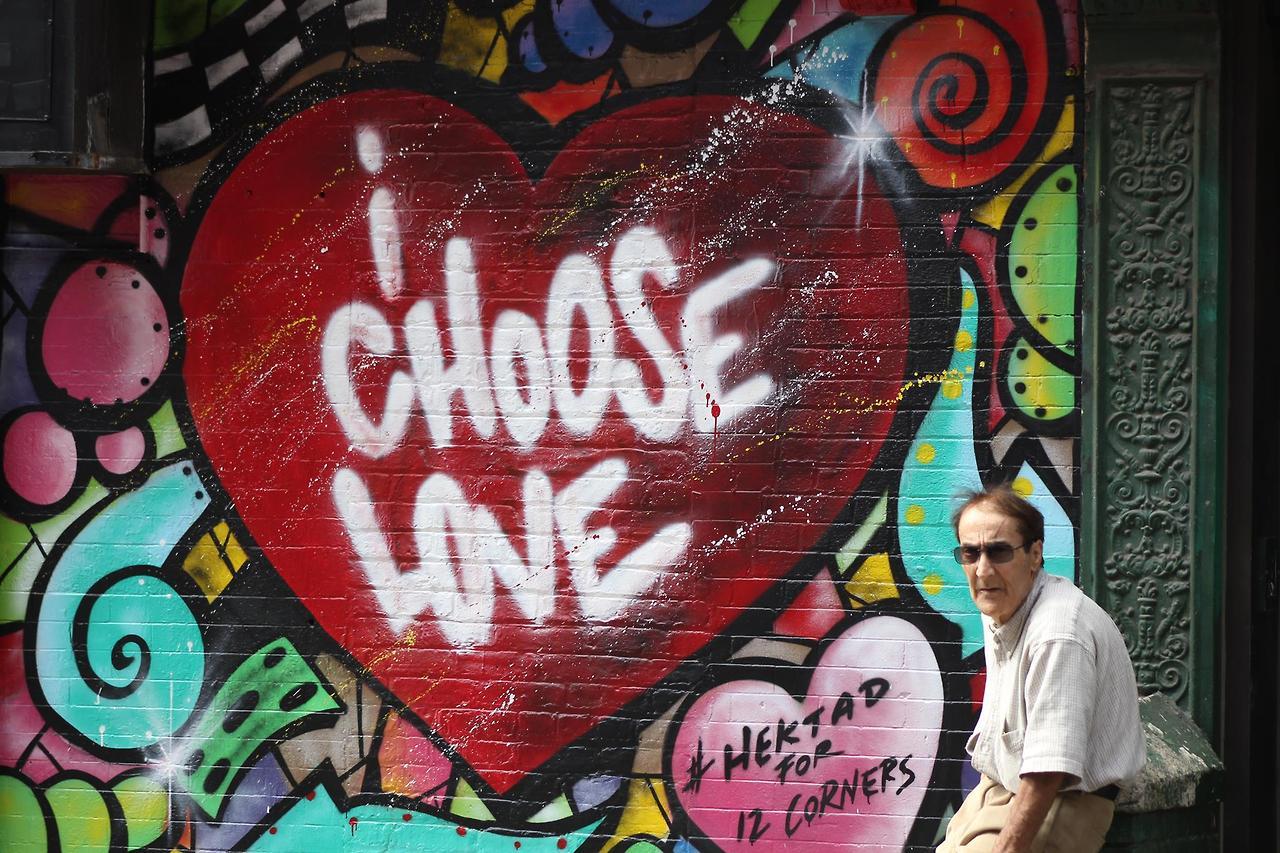 i
CHOOSE
LOVE
# HEKTAD
FOR
12 CORNERS